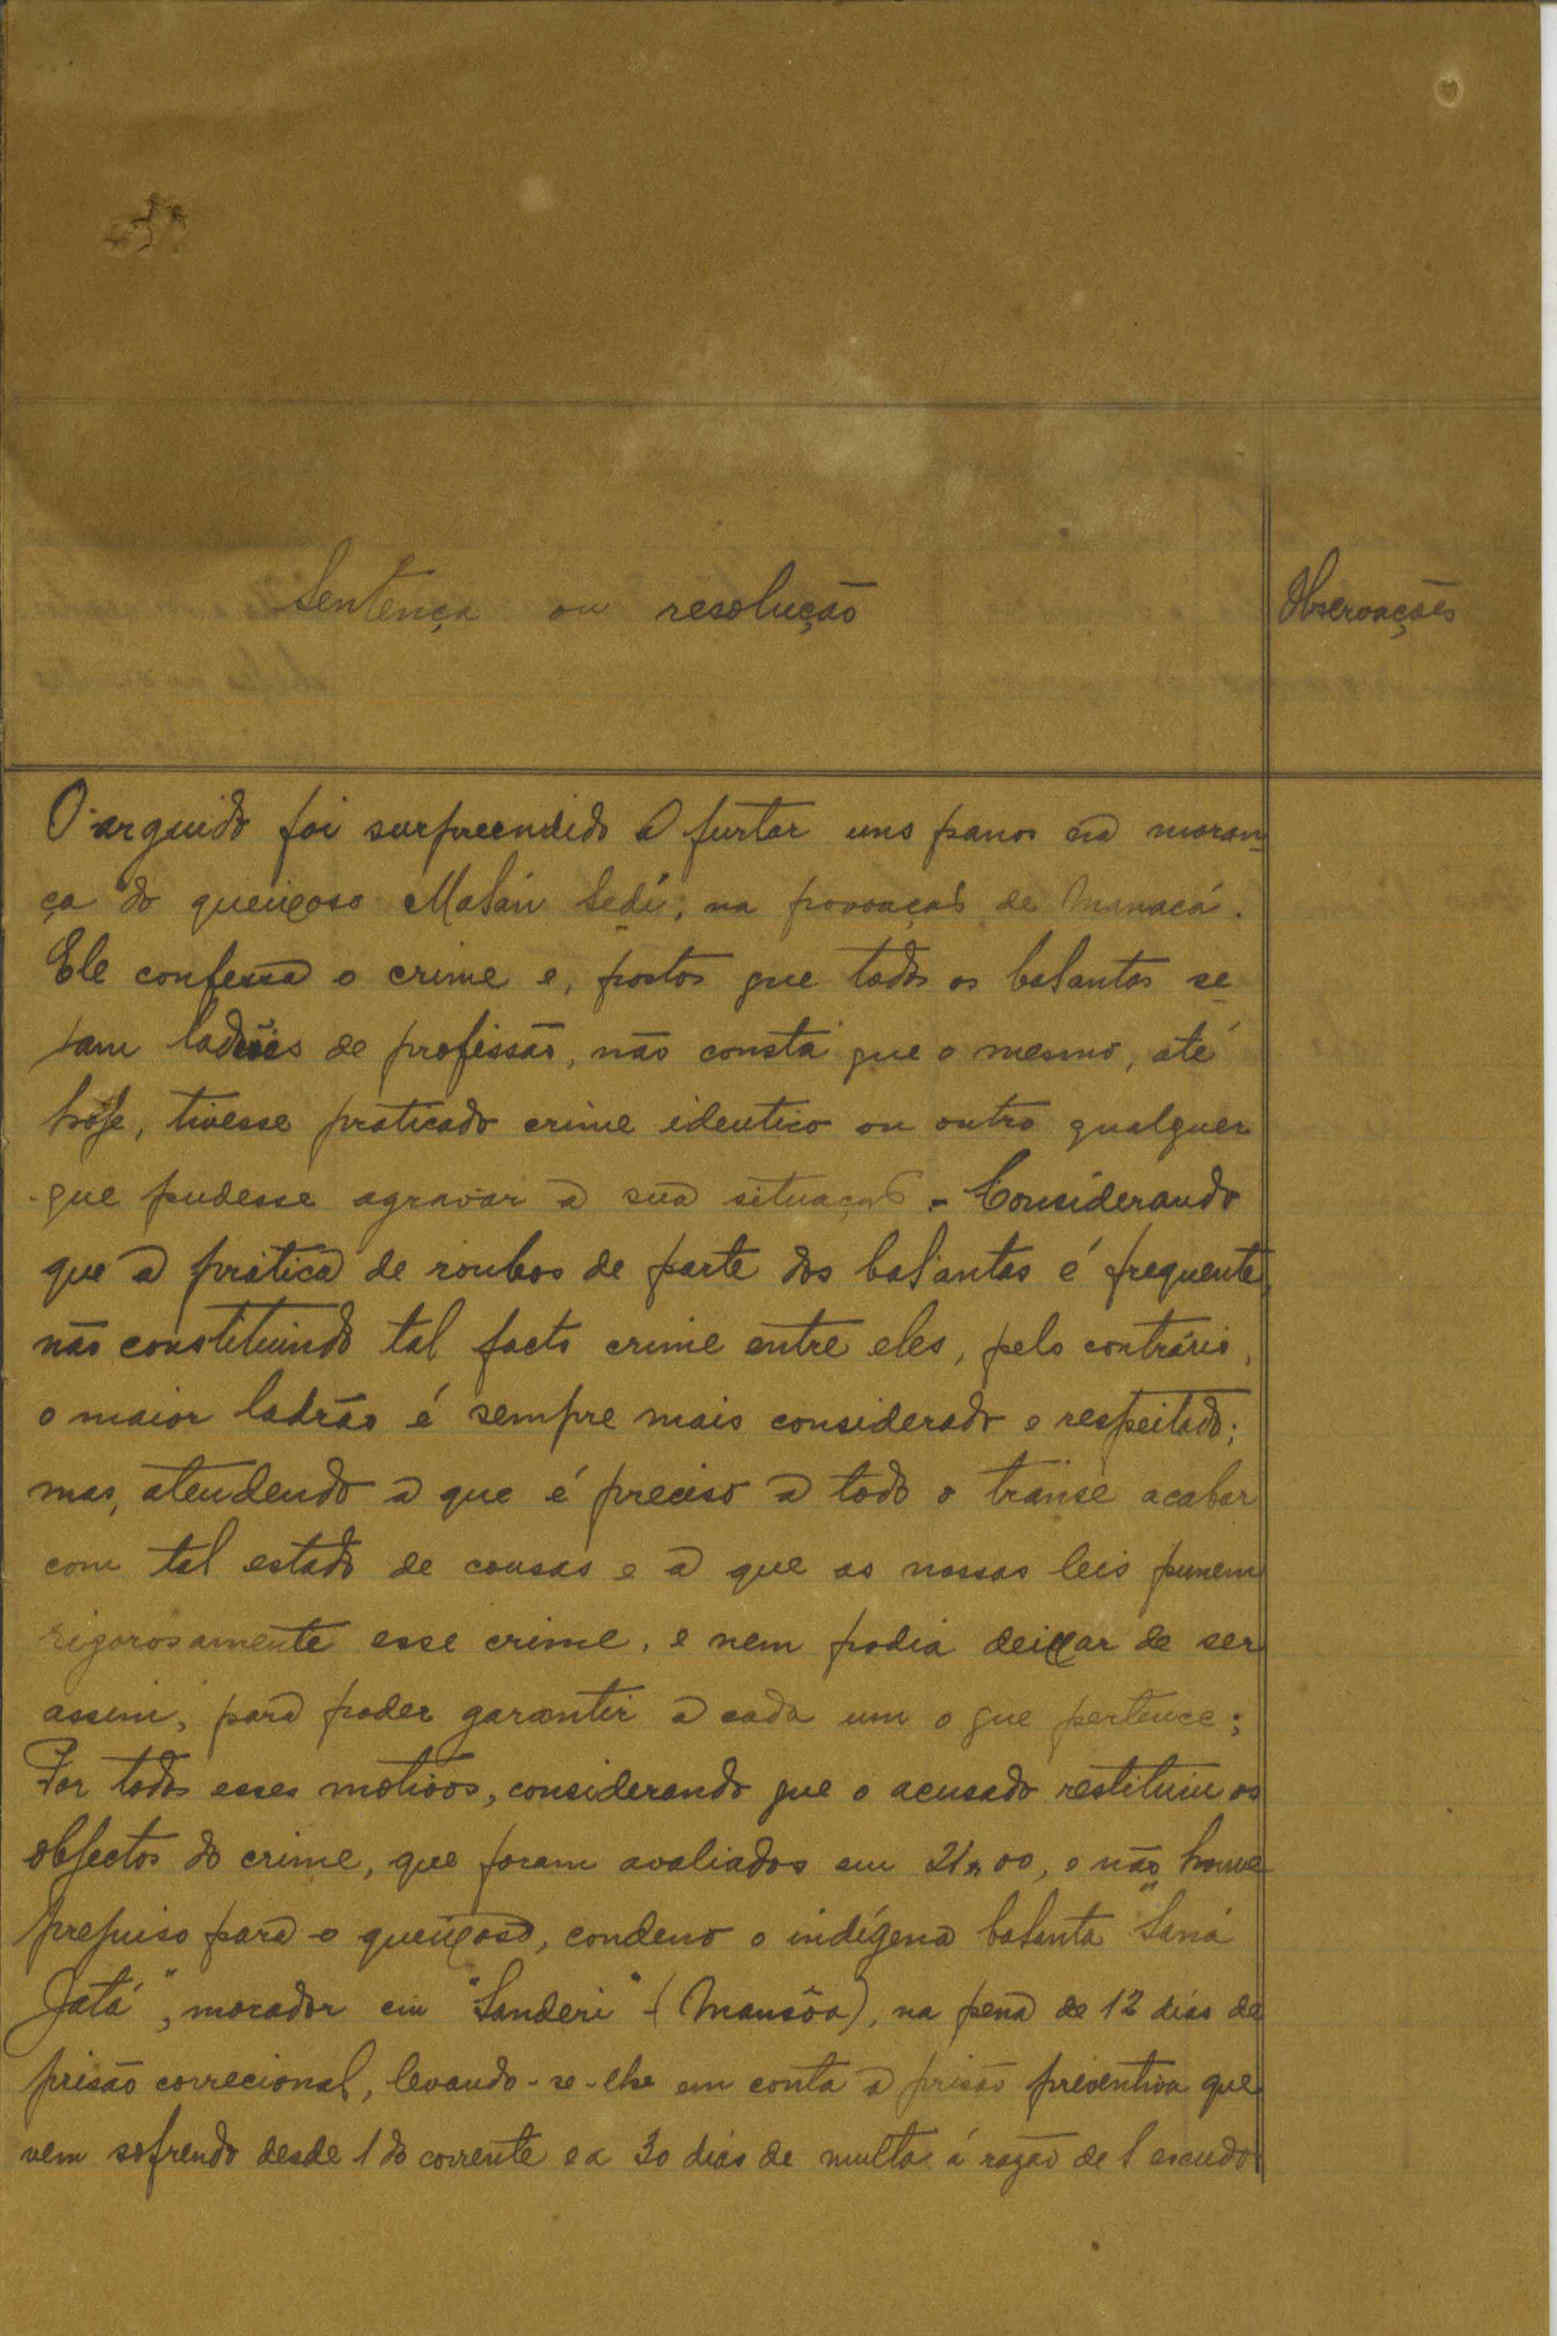 Sentença ou resolução
Observações
O arguido foi surpreendido a furtar uns panos na moran-
ça do queixoso Malan Sedi, na povoação de
Ele confessa o crime e, postos que todos os balantas se-
jam ladrões de profissão, não consta que o mesmo, até
hoje, tivesse praticado crime identico ou outro qualquer
que pudesse agravar a sua situação. - Considerando
que a prática de roubos de parte dos balantas é frequente,
não constituindo tal facto crime entre eles, pelo contrário,
o maior ladrão é sempre mais considerado e respeitado;
mas, atendendo a que é preciso a todo o transe acabar
com tal estado de cousas e a que as nossas leis punem
rigorosamente esse crime, e nem podia deixar de ser
assim, para poder garantir a cada um o que pertence;
Por todos esses motivos, considerando que o acusado restituiu os
objectos do crime, que foram avaliados em 21$00, e não houve
prejuiso para o queixoso, condeno o indígena balanta "Saná
Jatá", morador em "Sanderi" - (Mansôa), na pena de 12 dias de
prisão correcional, levando-se-lhe em conta a prisão preventiva que
vem sofrendo desde 1 do corrente e a 30 dias de multa á razão de 1 escudo